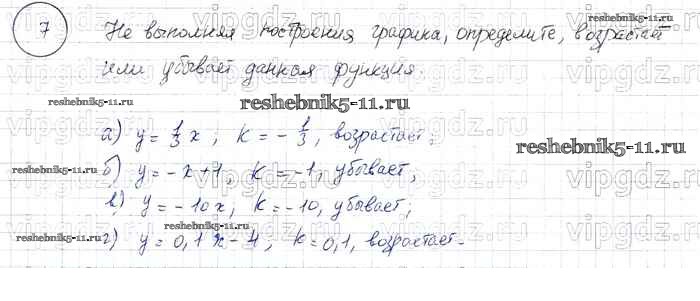 7 Не выполняя построения графика, определите, возрастает
или убывает данная функция.
reshebnik5-11.ru
а) y = 1/3 x; k = - 1/3, возрастает;
б) y = -x+1, k = -1, убывает,
в) y = -10x, k = -10, убывает;
г) y = 0,1x-4; k = 0,1, возрастает.
reshebnik5-11.ru
reshebnik5-11.ru
reshebnik5-11.ru
reshebnik5-11.ru
reshebnik5-11.ru
vipgdz.ru vipgdz.ru vipgdz.ru vipgdz.ru